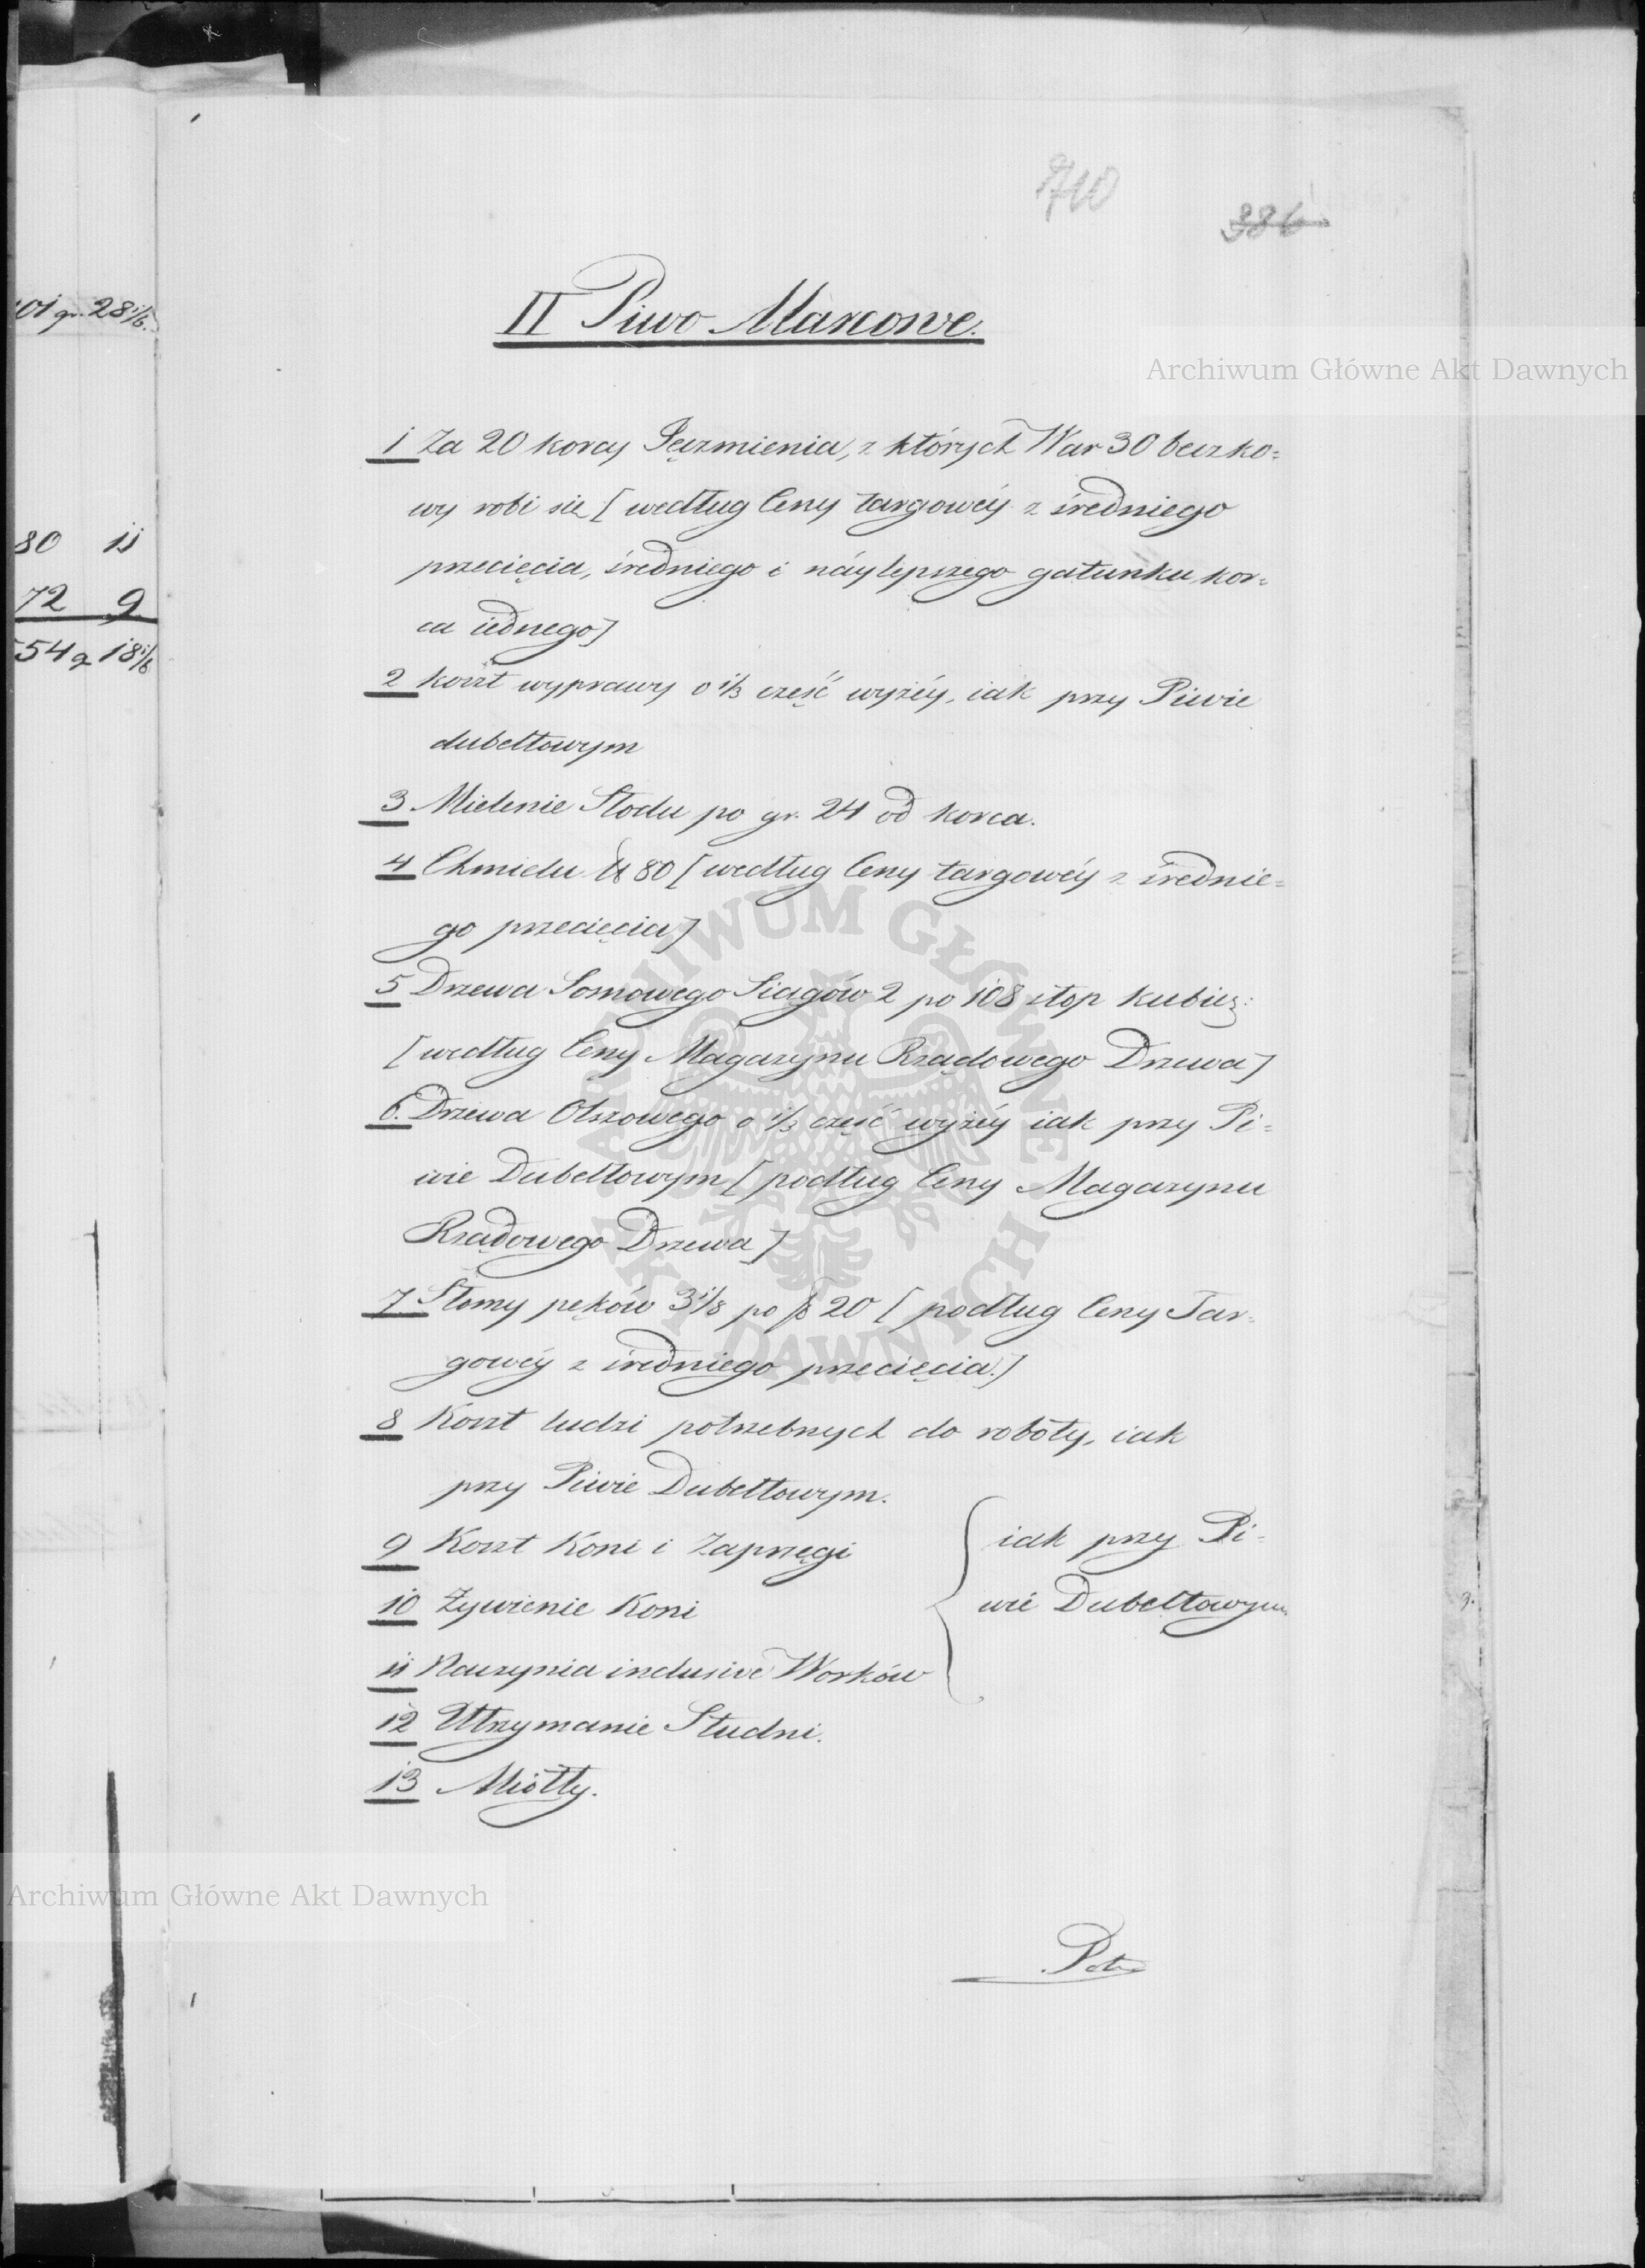 710
386
II Piwo Marcowe.
1 Za 20 korcy Jęczmienia, z których War 30 beczko=
wy robi się [według Ceny targowéy z średniego
przecięcia, średniego i náylepszego gatunku kor=
ca iednego]
2 koszt wyprawy o 1/3 część wyżéy, iak przy Piwie
dubeltowym
3 Mielenie Słodu po gr. 24 od korca.
4 Chmielu ℔ 80 [według Ceny targowéy z średnie=
go przecięcia]
5 Drzewa Sosnowego Siągów 2 po 108 stop kubicz:
[według Ceny Magazynu Rządowego Drzewa]
6. Drzewa Olszowego o 1/3 część wyżéy iak przy Pi=
wie Dubeltowym [podług Ceny Magazynu
Rządowego Drzewa]
7 Słomy pęków 3 1/8 po ℔ 20 [podług Ceny Tar=
gowéy z średniego przecięcia.]
8 Koszt ludzi potrzebnych do roboty, iak
przy Piwie Dubeltowym.
9 Koszt Koni i Zaprzęgi
10 Żywienie Koni
11 Naczynia inclusive Worków
iak przy Pi=
wie Dubeltowym
12 Utrzymanie Studni.
13 Miótły.
01 gr. 28 1/6.
80 11
72 9
54 g 18 1/6
Archiwum Główne Akt Dawnych
ARCHIWUM GŁÓWNE AKT DAWNYCH
Archiwum Główne Akt Dawnych